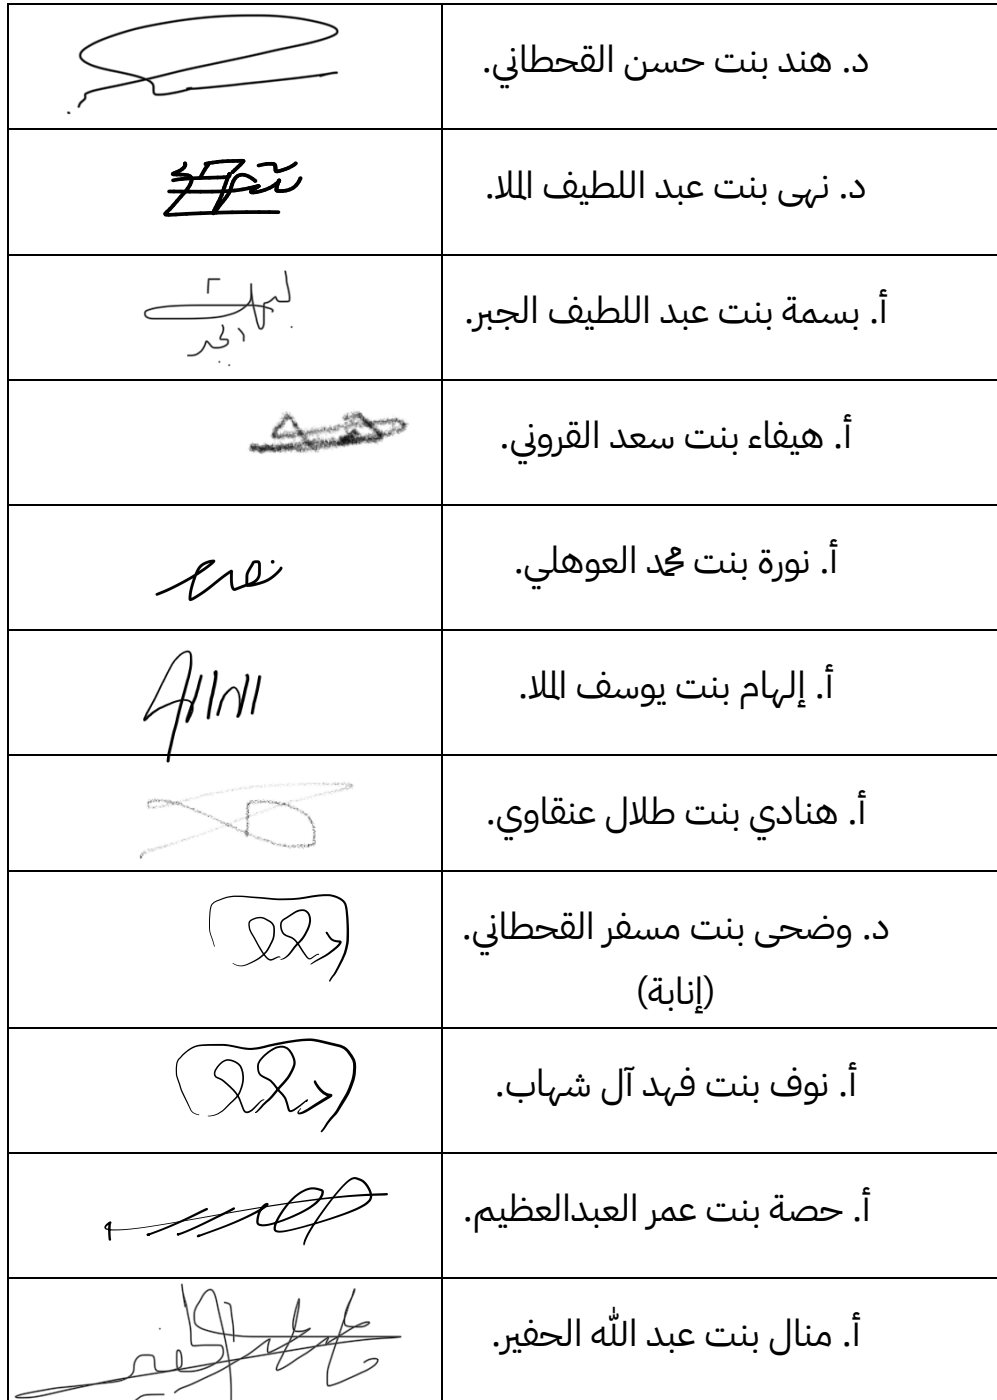 د. هند بنت حسن القحطاني.
د. نهى بنت عبد اللطيف الملا.
أ. بسمة بنت عبد اللطيف الجبر.
أ. هيفاء بنت سعد القروني.
أ. نورة بنت محمد العوهلي.
أ. إلهام بنت يوسف الملا.
أ. هنادي بنت طلال عنقاوي.
د. وضحى بنت مسفر القحطاني.
(إنابة)
أ. نوف بنت فهد آل شهاب.
أ. حصة بنت عمر العبدالعظيم.
أ. منال بنت عبد الله الحفير.